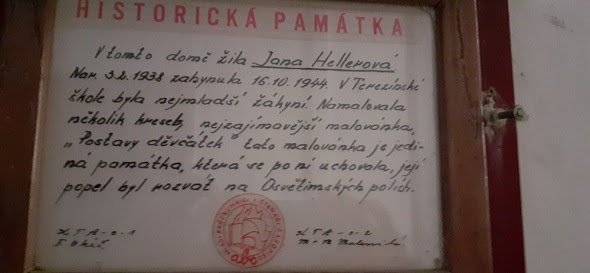 HISTORICKÁ PAMÁTKA
V tomto domě žila Jana Hellerová
Nar. 3.2.1938 zahynula 16.10.1944. V Terezínské
škole byla nejmladší žákyní. Namalovala
několik kreseb, nejzajímavější malovánka,
„Postavy děvčátek" tato malovánka je jedi-
ná památka, která se po ní uchovala, její
popel byl rozvát na Osvětimských polích.